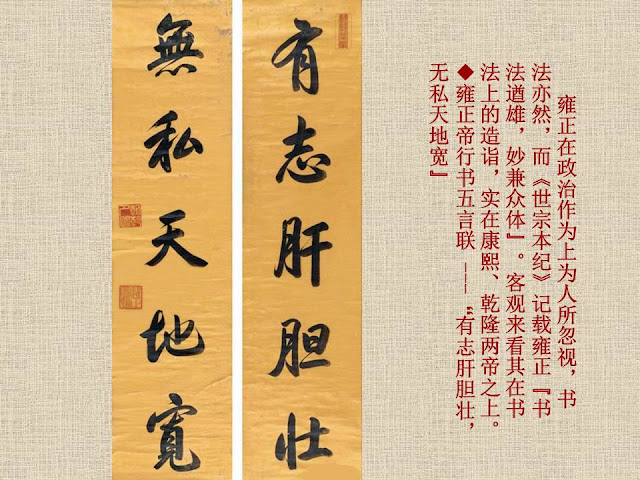 雍正在政治作为上为人所忽视，书
法亦然，而《世宗本纪》记载雍正『书
法遒雄，妙兼众体』。客观来看其在书
法上的造诣，实在康熙、乾隆两帝之上。
◆雍正帝行书五言联 ———“有志肝胆壮，
无私天地宽』
有志肝胆壮
無私天地寬